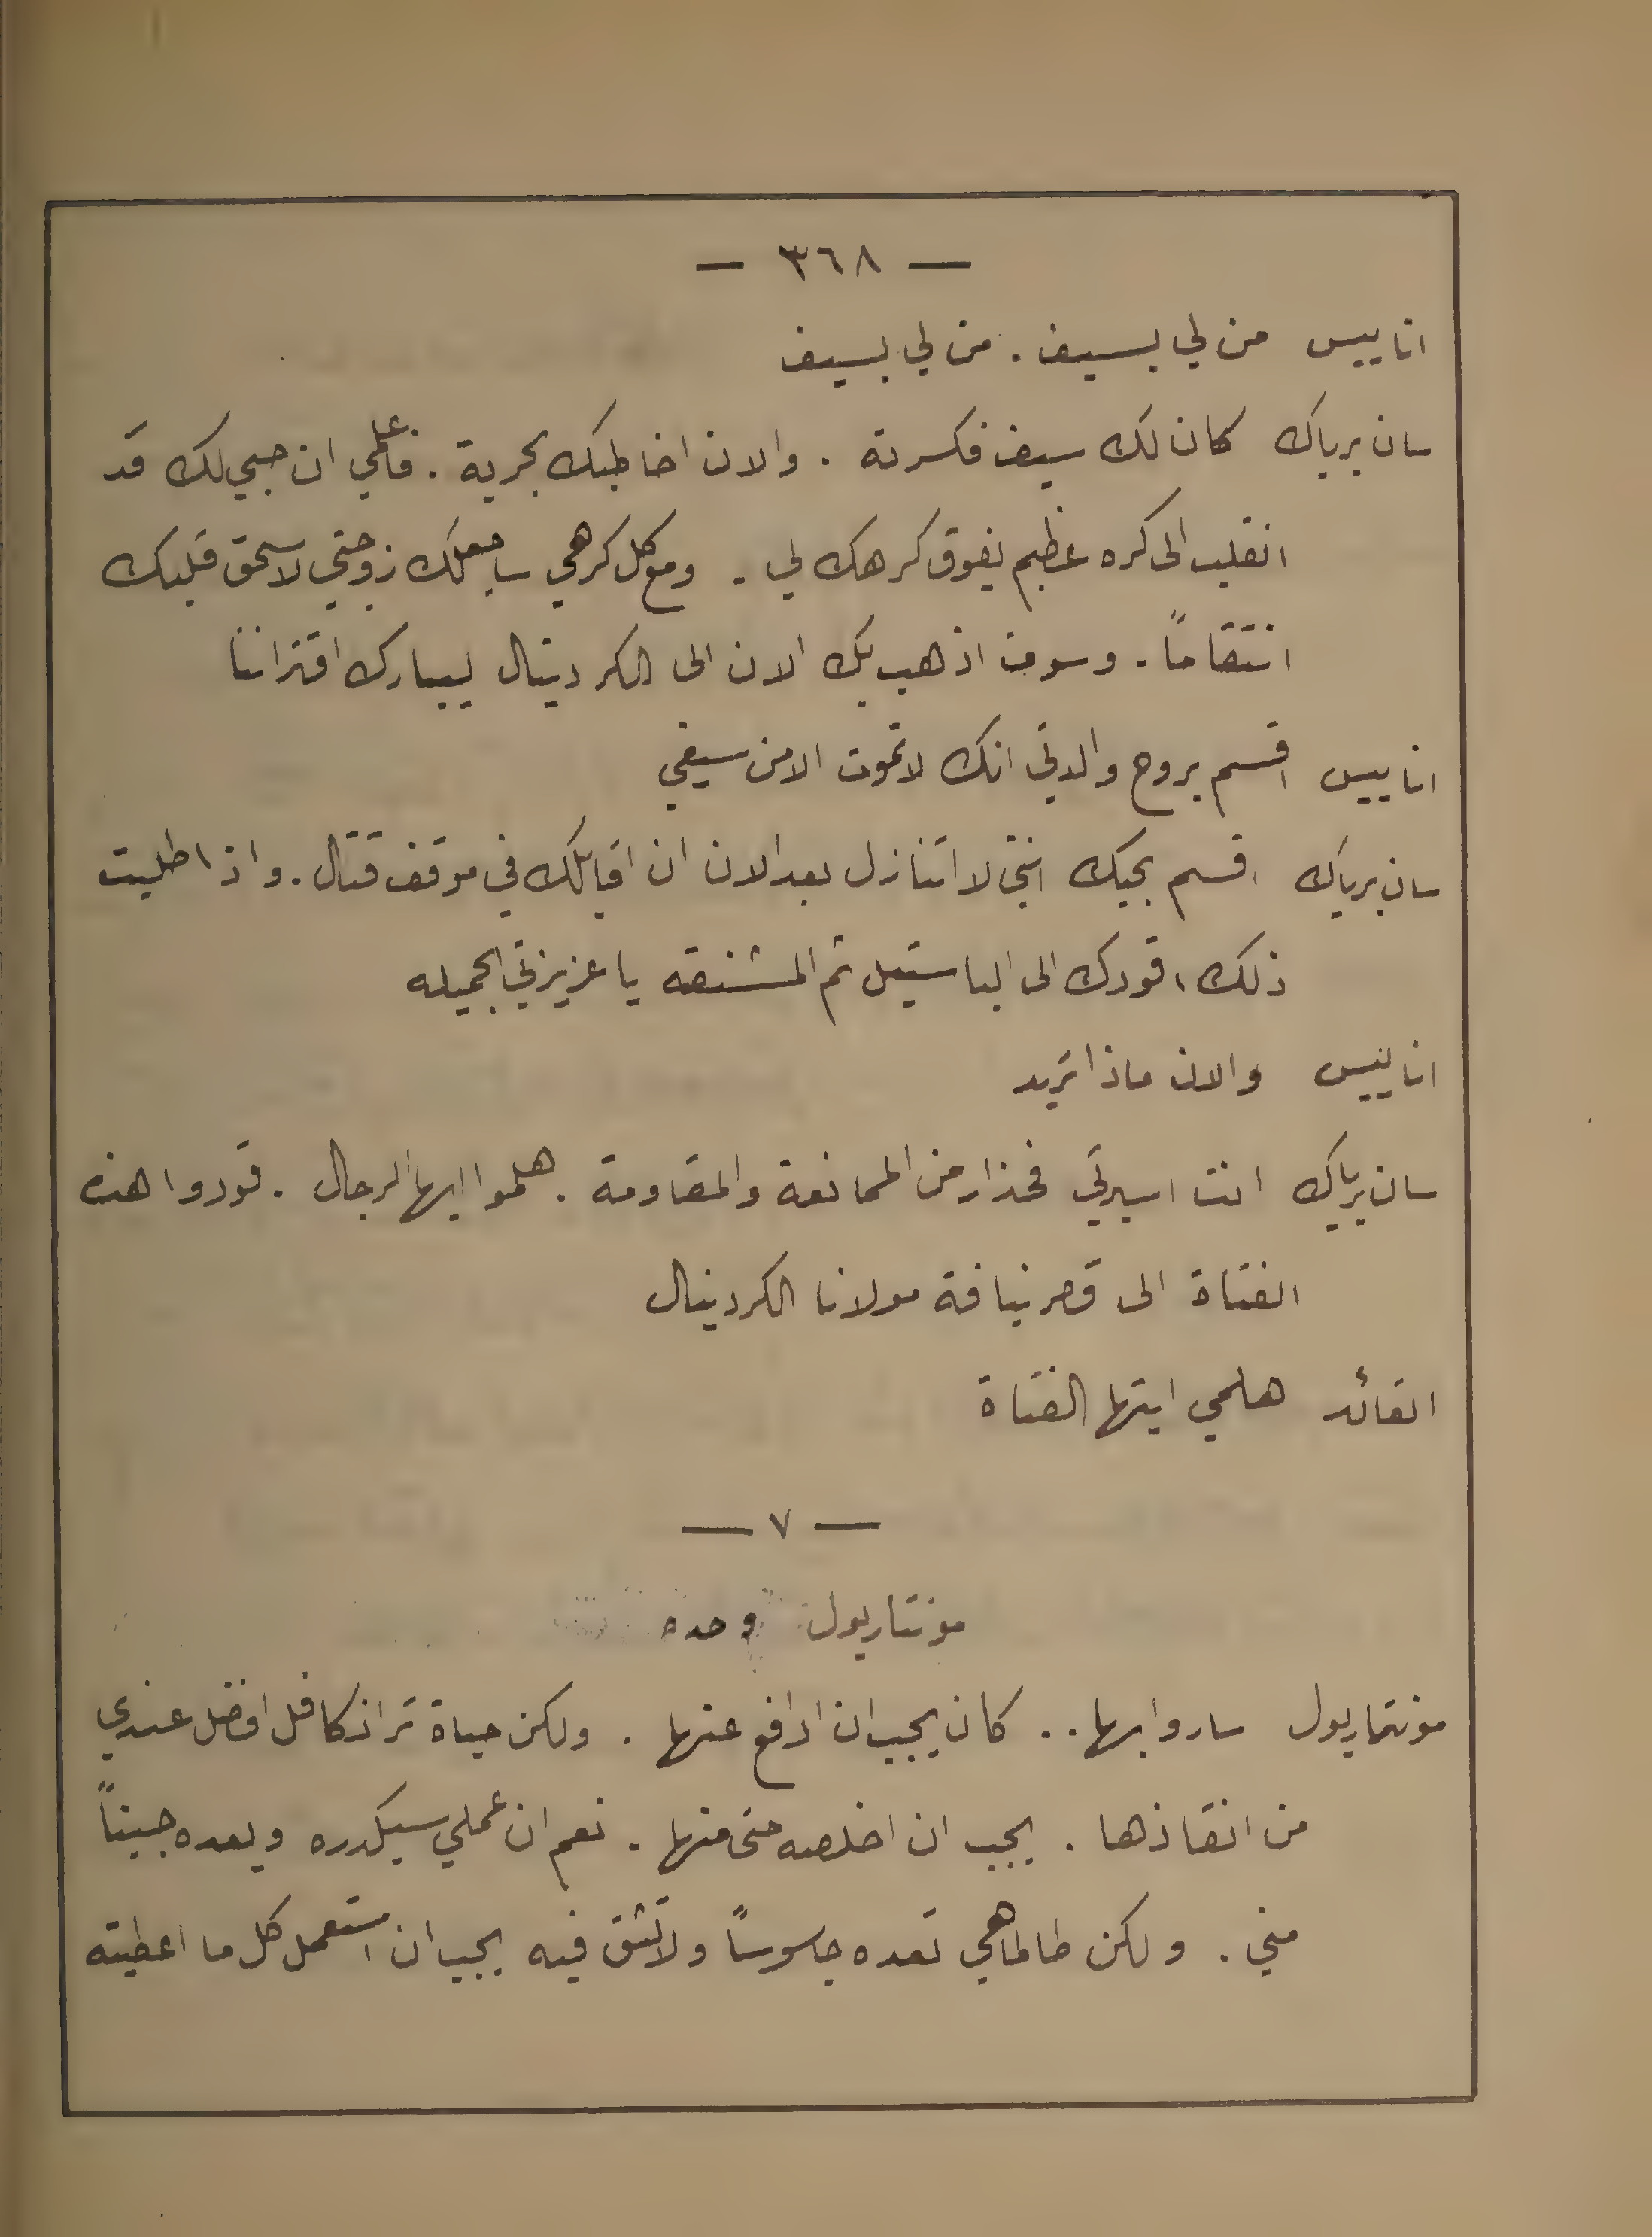 — ٣٦٨ —
اناييس من لي بسيف . من لي بسيف
سان برياك كان لك سيف فكسرته . والان اخاطبك بحرية . فاعلمي ان حبي لك قد
انقلب الى كره عظيم يفوق كرهك لي . ومع كل كرهي ساجعلك زوجتي لاسحق قلبك
انتقاماً . وسوف اذهب بك الان الى الكردينال ليبارك اقتراننا
اناييس اقسم بروح والدتي انك لا تموت الا من سيفي
سان برياك اقسم بحبك انني لا اتنازل بعد الان ان اقابلك في موقف قتال . واذا طلبت
ذلك اقودك الى الباستيل ثم المشنقه يا عزيزتي الجميله
اناييس والان ماذا تريد
سان برياك انت اسيرتي فحذار من الممانعة والمقاومة . هلموا ايها الرجال . قودوا هذه
الفتاة الى قصر نيافة مولانا الكردينال
القائد هلمي ايتها الفتاة
— ٧ —
مونتاريول وحده
مونتاريول ساروا بها . . كان يجب ان ادافع عنها . ولكن حياة ترانكافل افضل عندي
من انقاذها . يجب ان اخلصه حتى منها . نعم ان عملي سيكدره ويعده جبناً
مني . ولكن طالما هي تعده جاسوساً ولا تثق فيه يجب ان استعمل كل ما اعطيته